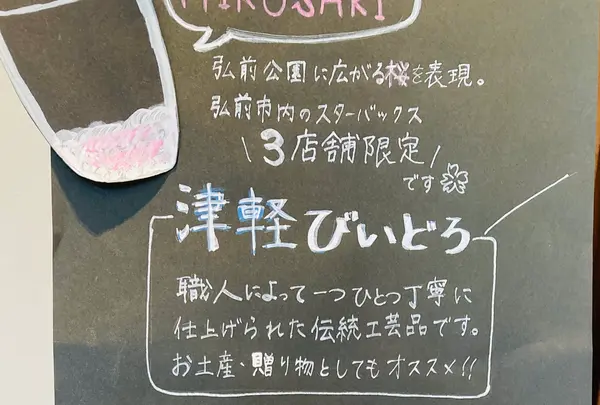 HIROSAKI
弘前公園に広がる桜を表現。
弘前市内のスターバックス
\ 3店舗限定 /
です
津軽びいどろ
職人によって一つひとつ丁寧に
仕上げられた伝統工芸品です。
お土産・贈り物としてもオススメ!!